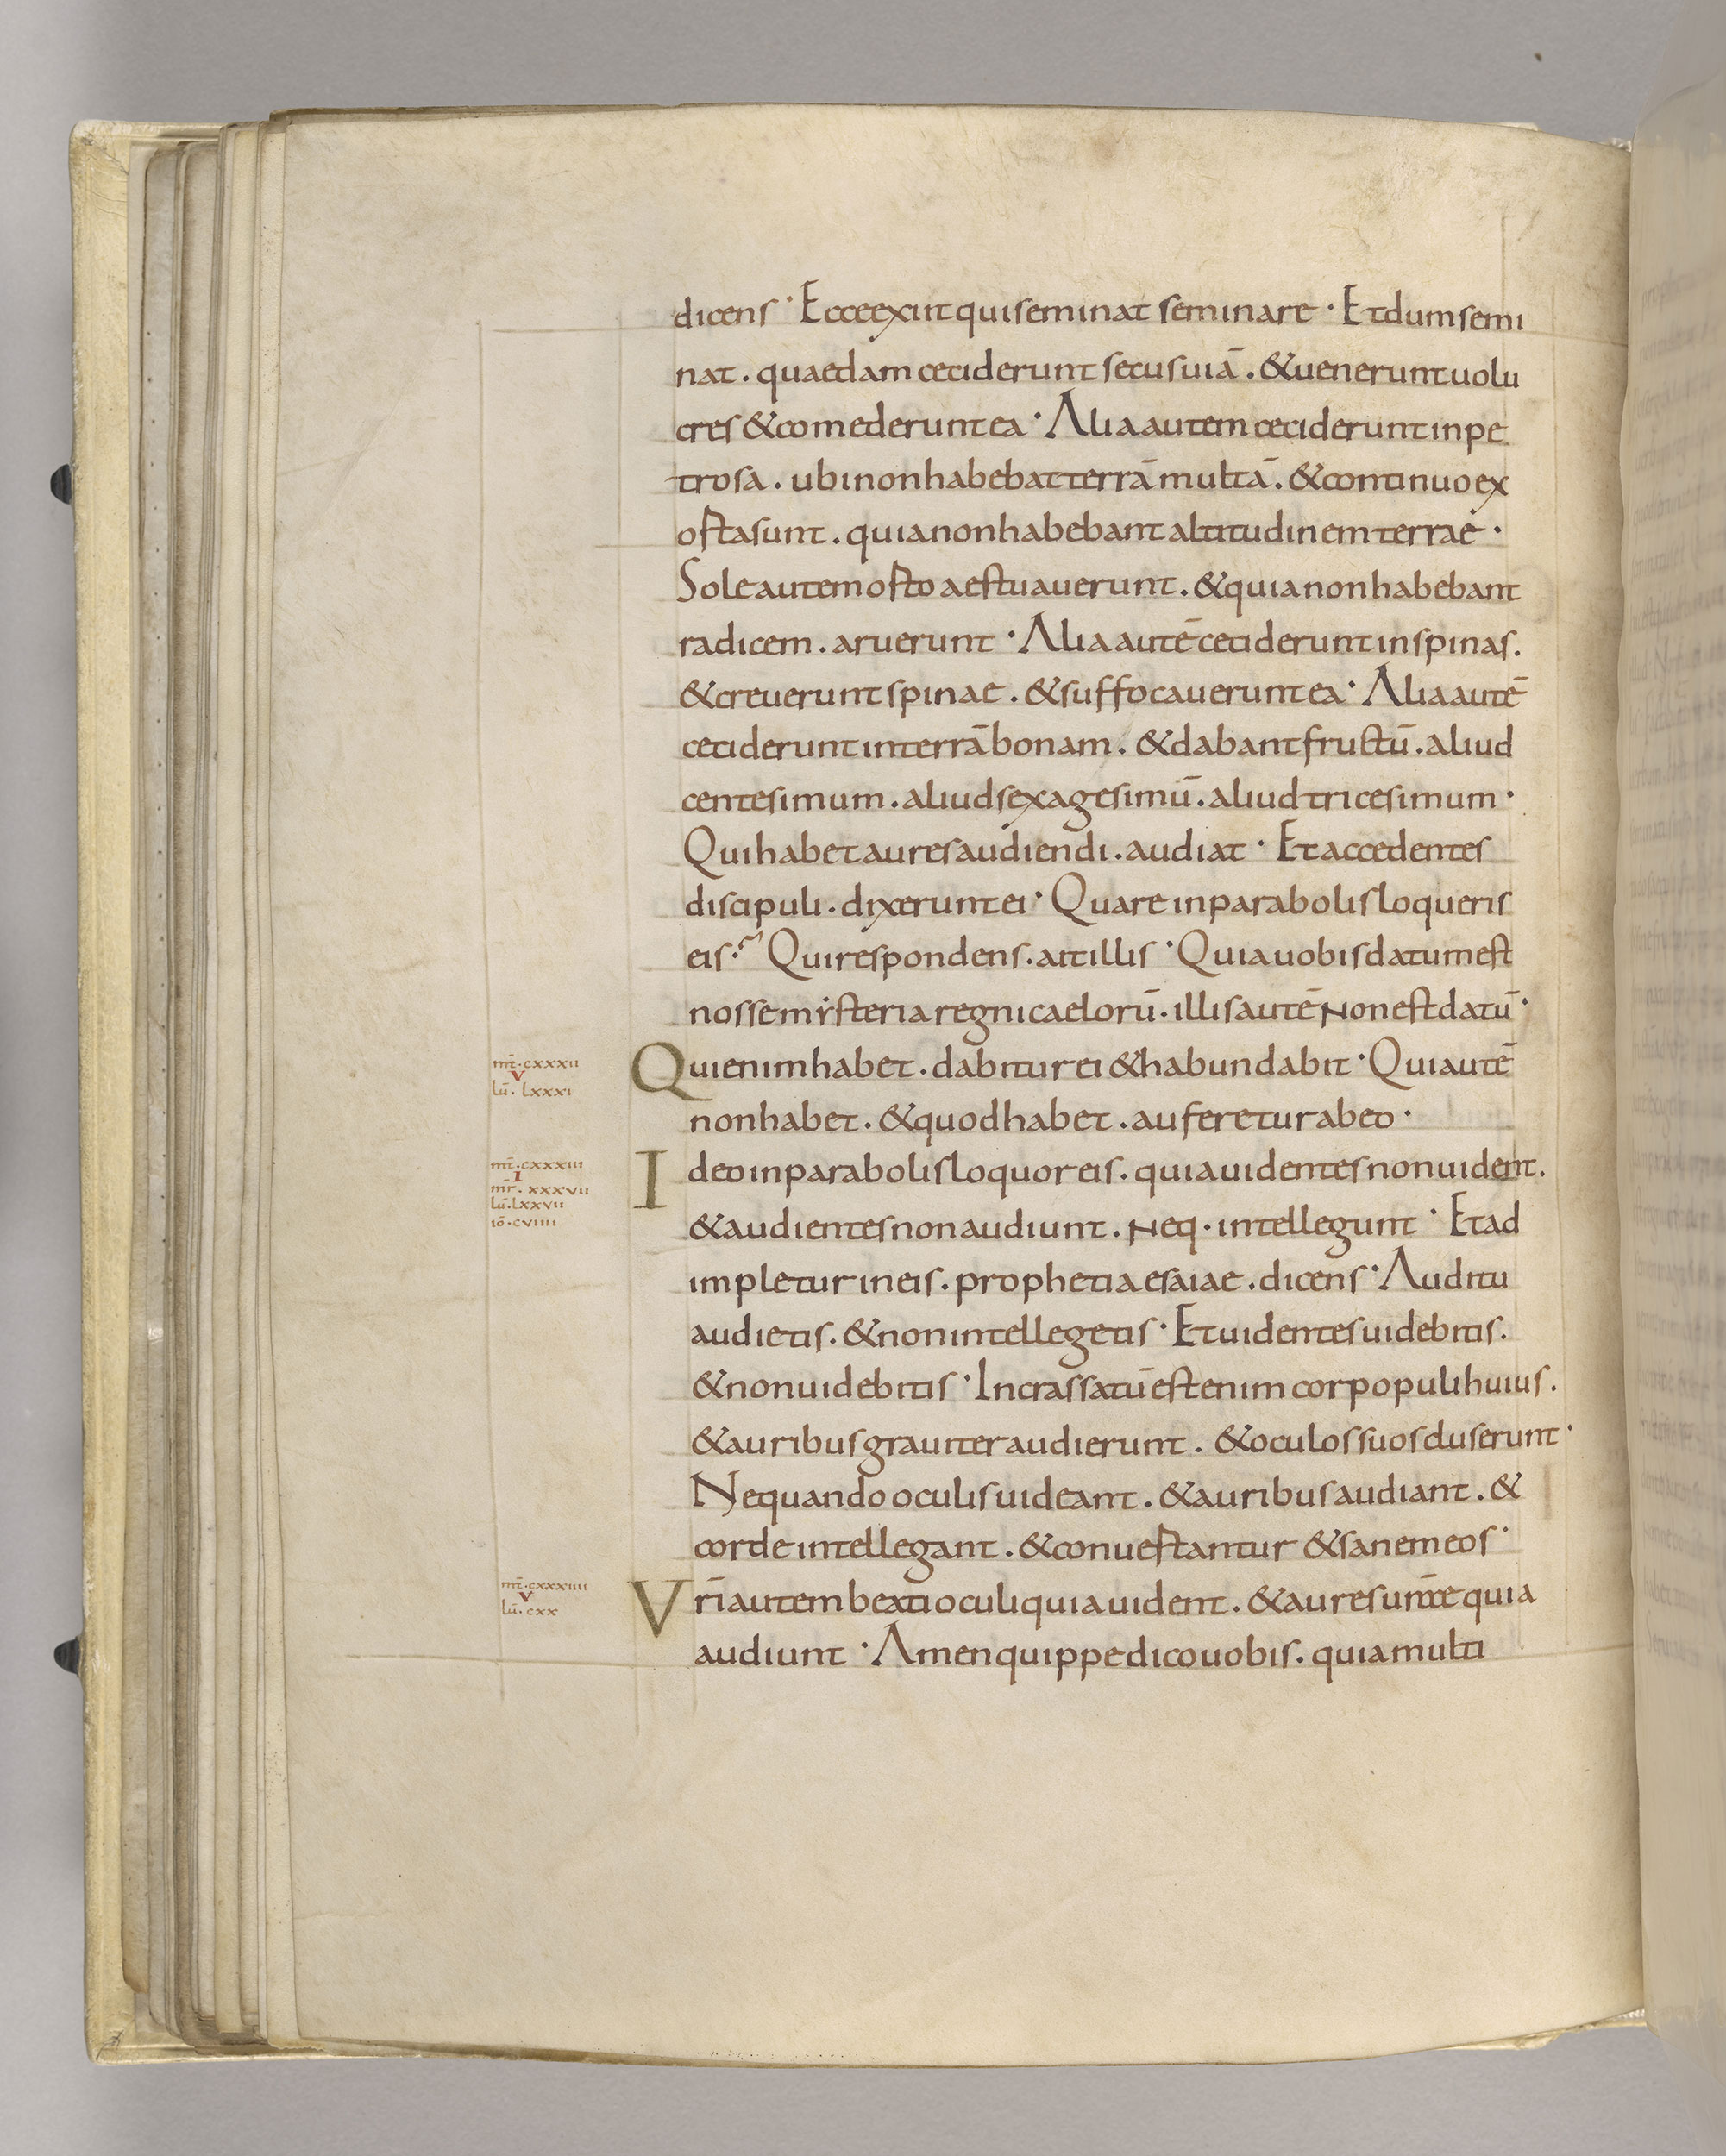 dicens · Ecce exiit qui seminat seminare · Et dum semi
nat . quaedam ceciderunt secus uiā . & uenerunt uolu
cres & comederunt ea · Alia autem ceciderunt in pe
trosa . ubi non habebat terrā multā . & continuo ex
orta sunt . quia non habebant altitudinem terrae ·
Sole autem orto aestuauerunt . & quia non habebant
radicem . aruerunt · Alia autē ceciderunt in spinas .
& creuerunt spinae . & suffocauerunt ea · Alia autē
ceciderunt in terrā bonam . & dabant fructū . aliud
centesimum . aliud sexagesimū . aliud tricesimum ·
Qui habet aures audiendi . audiat · Et accedentes
discipuli . dixerunt ei · Quare in parabolis loqueris
eis ? Qui respondens . ait illis · Quia uobis datum est
nosse mẏsteria regni caelorū . illis autē Non est datū ·
mt̄ · cxxxii
v
lū . lxxxi
Qui enim habet . dabitur ei & habundabit · Qui autē
non habet . & quod habet . auferetur ab eo ·
mt̄ · cxxxiii
I
mr̄ . xxxvii
lū . lxxvii
iō · cviiii
Ideo in parabolis loquor eis . quia uidentes non uident .
& audientes non audiunt . Neq · intellegunt · Et ad
impletur in eis . prophetia esaiae . dicens · Auditu
audietis . & non intellegetis · Et uidentes uidebitis .
& non uidebitis · Incrassatū est enim cor populi huius .
& auribus grauiter audierunt . & oculos suos cluserunt ·
Nequando oculis uideant . & auribus audiant . &
corde intellegant . & conuertantur & sanem eos ·
mt̄ · cxxxiiii
v
lū . cxx
Vr̄i autem beati oculi quia uident . & aures ur̄ae quia
audiunt · Amen quippe dico uobis . quia multi